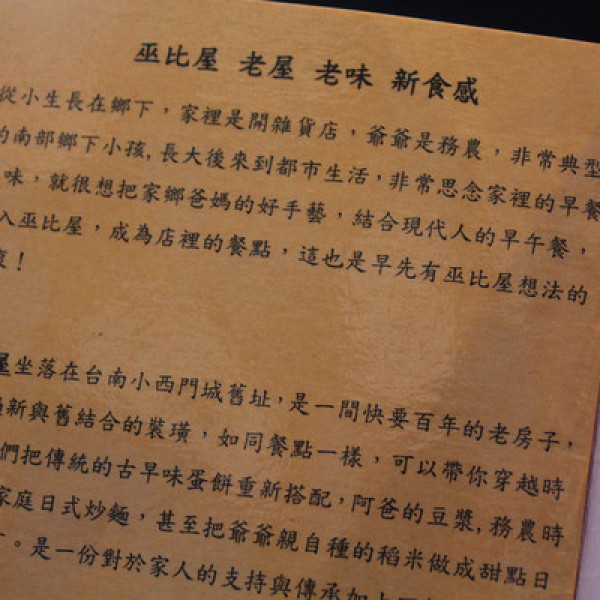 巫比屋 老屋 老味 新食感
從小生長在鄉下，家裡是開雜貨店，爺爺是務農，非常典型
的南部鄉下小孩,長大後來到都市生活，非常思念家裡的早餐
味，就很想把家鄉爸媽的好手藝，結合現代人的早午餐，
入巫比屋，成為店裡的餐點，這也是早先有巫比屋想法的
！
屋坐落在台南小西門城舊址，是一間快要百年的老房子，
新與舊結合的裝璜，如同餐點一樣，可以帶你穿越時
們把傳統的古早味蛋餅重新搭配，阿爸的豆漿,務農時
家庭日式炒麵，甚至把爺爺親自種的稻米做成甜點日
。是一份對於家人的支持與傳承加上